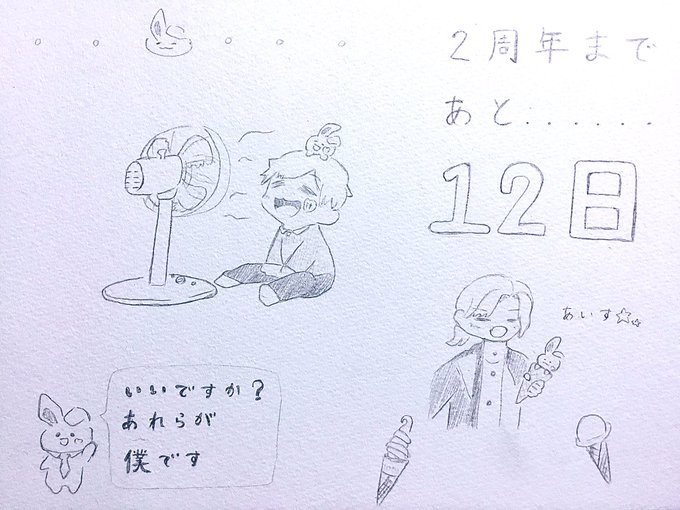 2周年まで
あと......
12日
あいす☆☆
いいですか?
あれらが
僕です